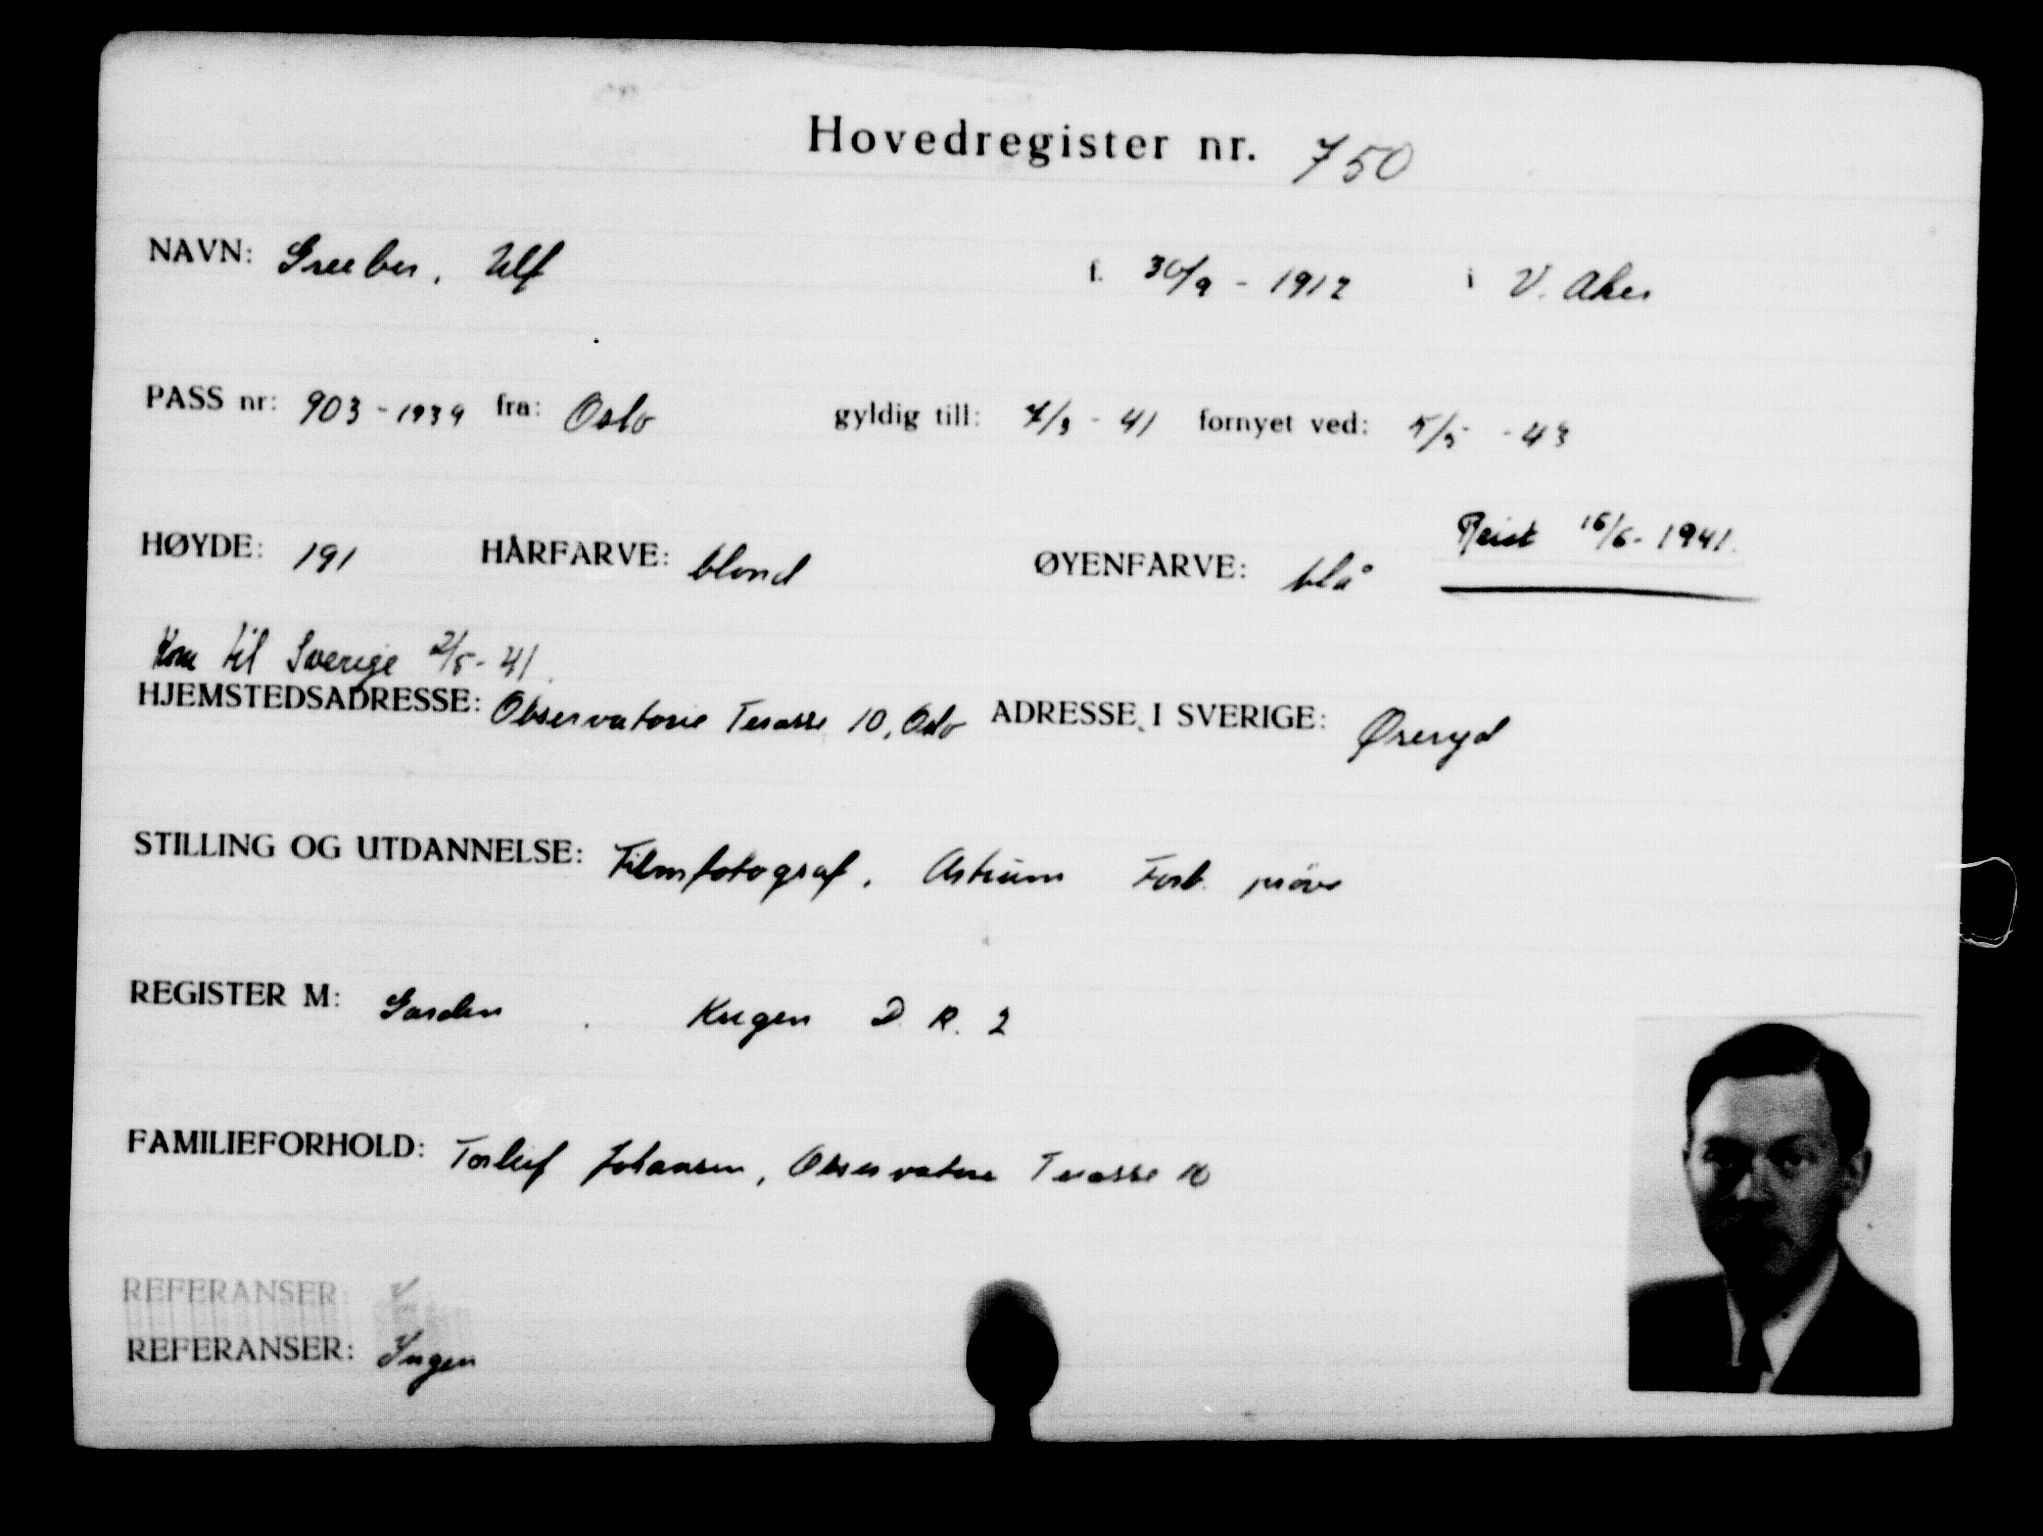 Hovedregister nr. 750
NAVN: Greeber, Ulf f. 30/9 - 1912 i V. Aker
PASS nr: 903 - 1939 fra: Oslo gyldig till: 7/3 - 41 fornyet ved: 5/5 - 43
Reist 16/6 - 1941.
HØYDE: 191 HÅRFARVE: blond ØYENFARVE: blå
Kom til Sverige 2/5 - 41.
HJEMSTEDSADRESSE: Observatorie Terasse 10, Oslo ADRESSE I SVERIGE: Øreryd
STILLING OG UTDANNELSE: Filmfotograf, Artium Forb. prøve
REGISTER M: Garden. Krigen D. R. 2
FAMILIEFORHOLD: Torleif Johansen, Observatorie Terasse 10
REFERANSER:
REFERANSER: Ingen